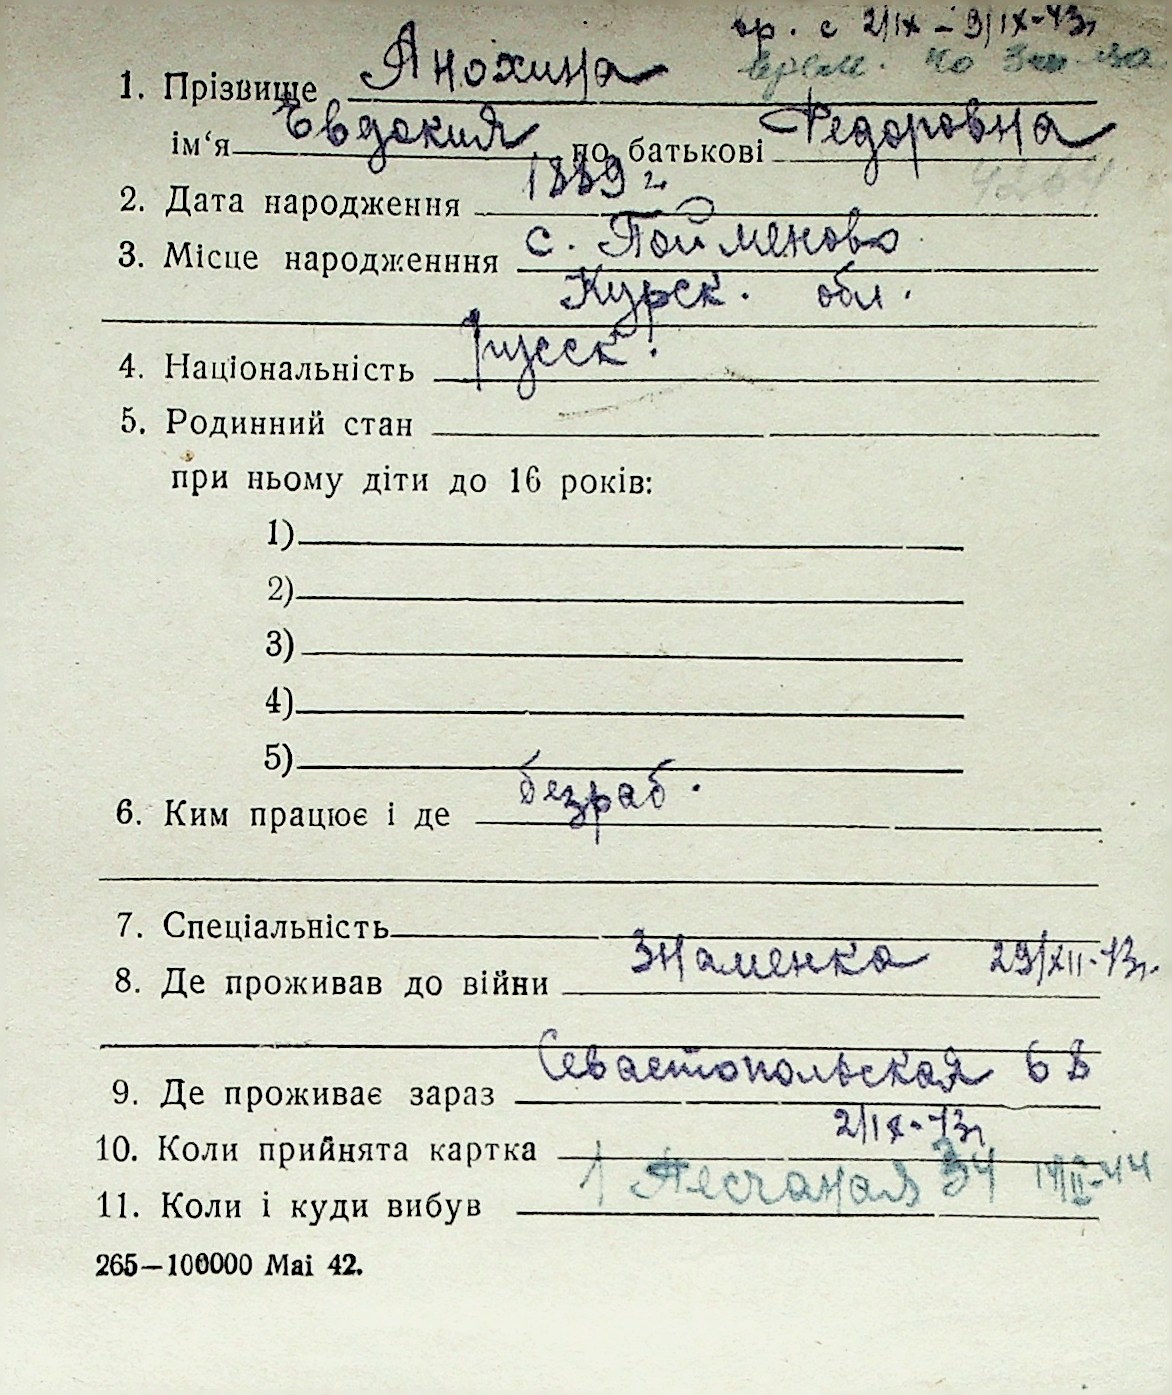 вр. с 2/IX – 9/IX-43г
врем. по
1. Прізвище Анохина
ім‘я Евдокия по батькові Федоровна
2. Дата народження 1889 г.
3. Місце народженння с. Пойменово
Курск. обл.
4. Національність русск.
5. Родинний стан
при ньому діти до 16 років:
1)
2)
3)
4)
5)
6. Ким працює і де безраб.
7. Спеціальність
8. Де проживав до війни Знаменка 29/XII-43г.
9. Де проживає зараз Севастопольская 68
10. Коли прийнята картка 2/IX-43г
11. Коли і куди вибув 1 Песчаная 34 14/II-44
265—100000 Mai 42.